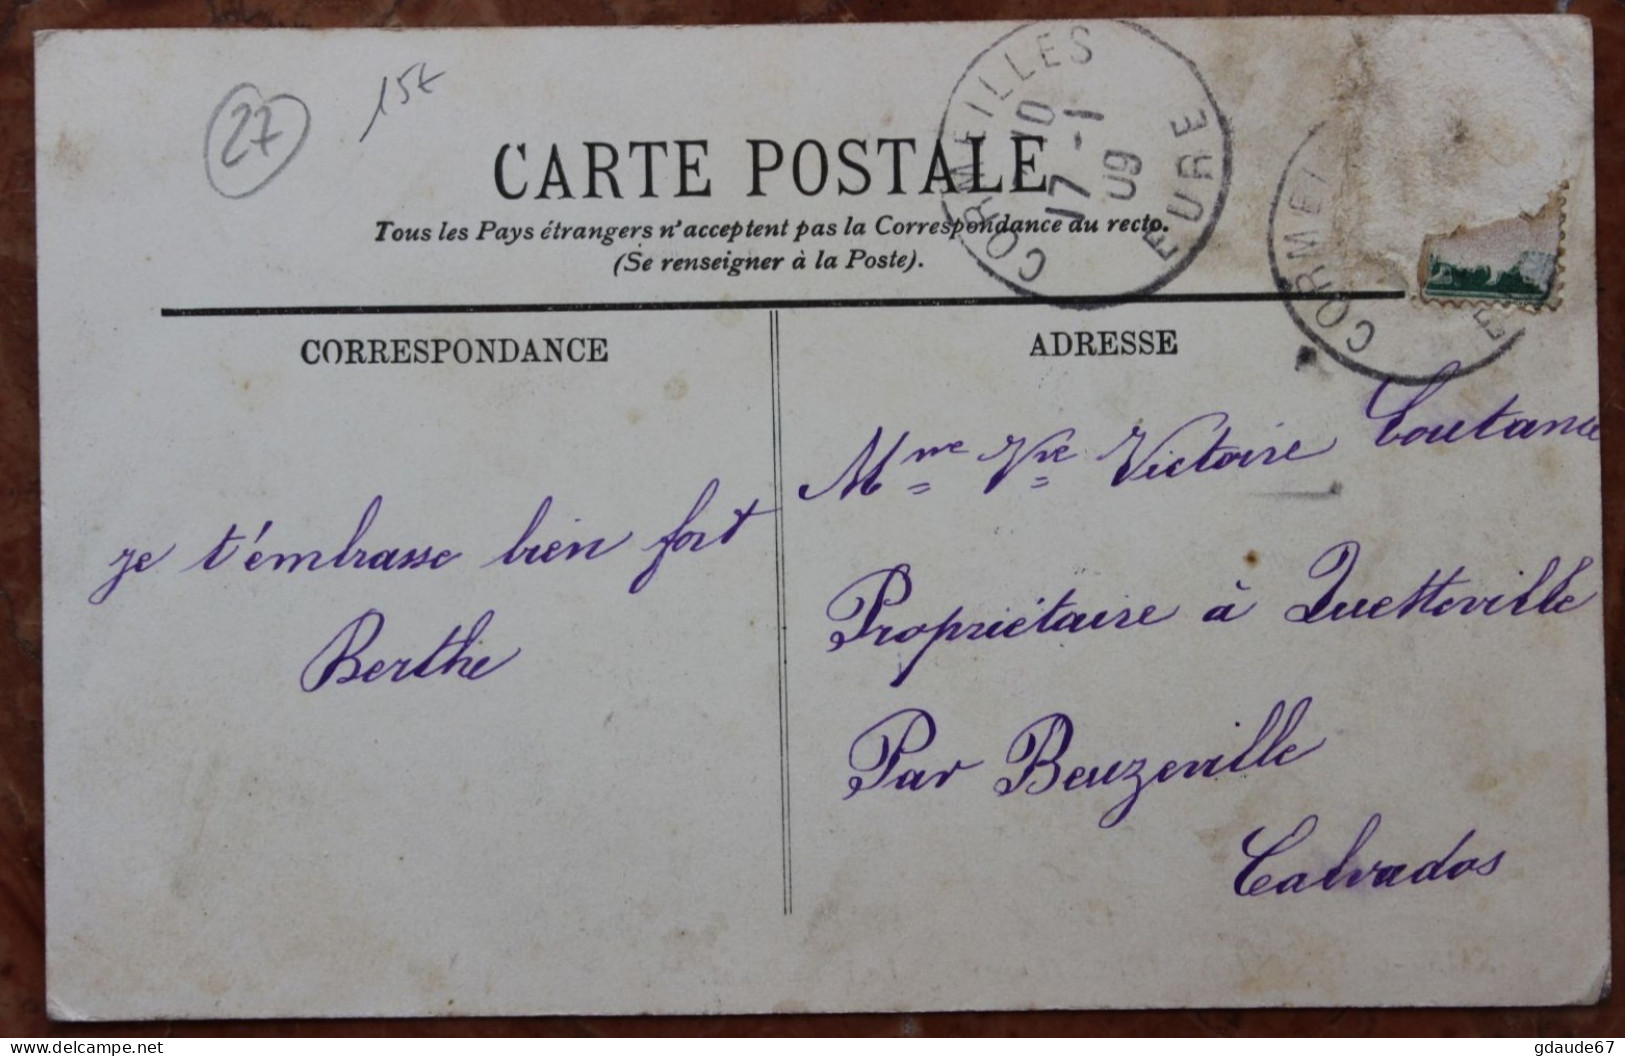 27
15€
CARTE POSTALE
Tous les Pays étrangers n'acceptent pas la Correspondance au recto.
(Se renseigner à la Poste).
CORMEILLES
10
17 - 1
09
EURE
CORMEI
E
CORRESPONDANCE
ADRESSE
je t'embrasse bien fort
Berthe
Mme Vve Victoire Coutance
Propriétaire à Quetteville
Par Beuzeville
Calvados
delcampe.net
gdaude67